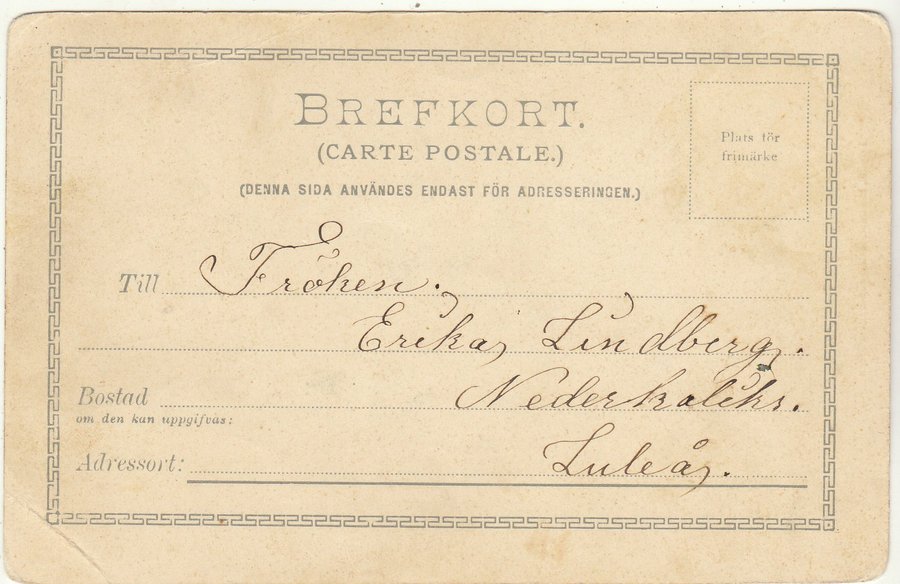 BREFKORT.
(CARTE POSTALE.)
(DENNA SIDA ANVÄNDES ENDAST FÖR ADRESSERINGEN.)
Plats för
frimärke
Till Fröken.
Erika Lindberg.
Bostad Nederkaliks.
om den kan uppgifvas:
Adressort: Luleå.